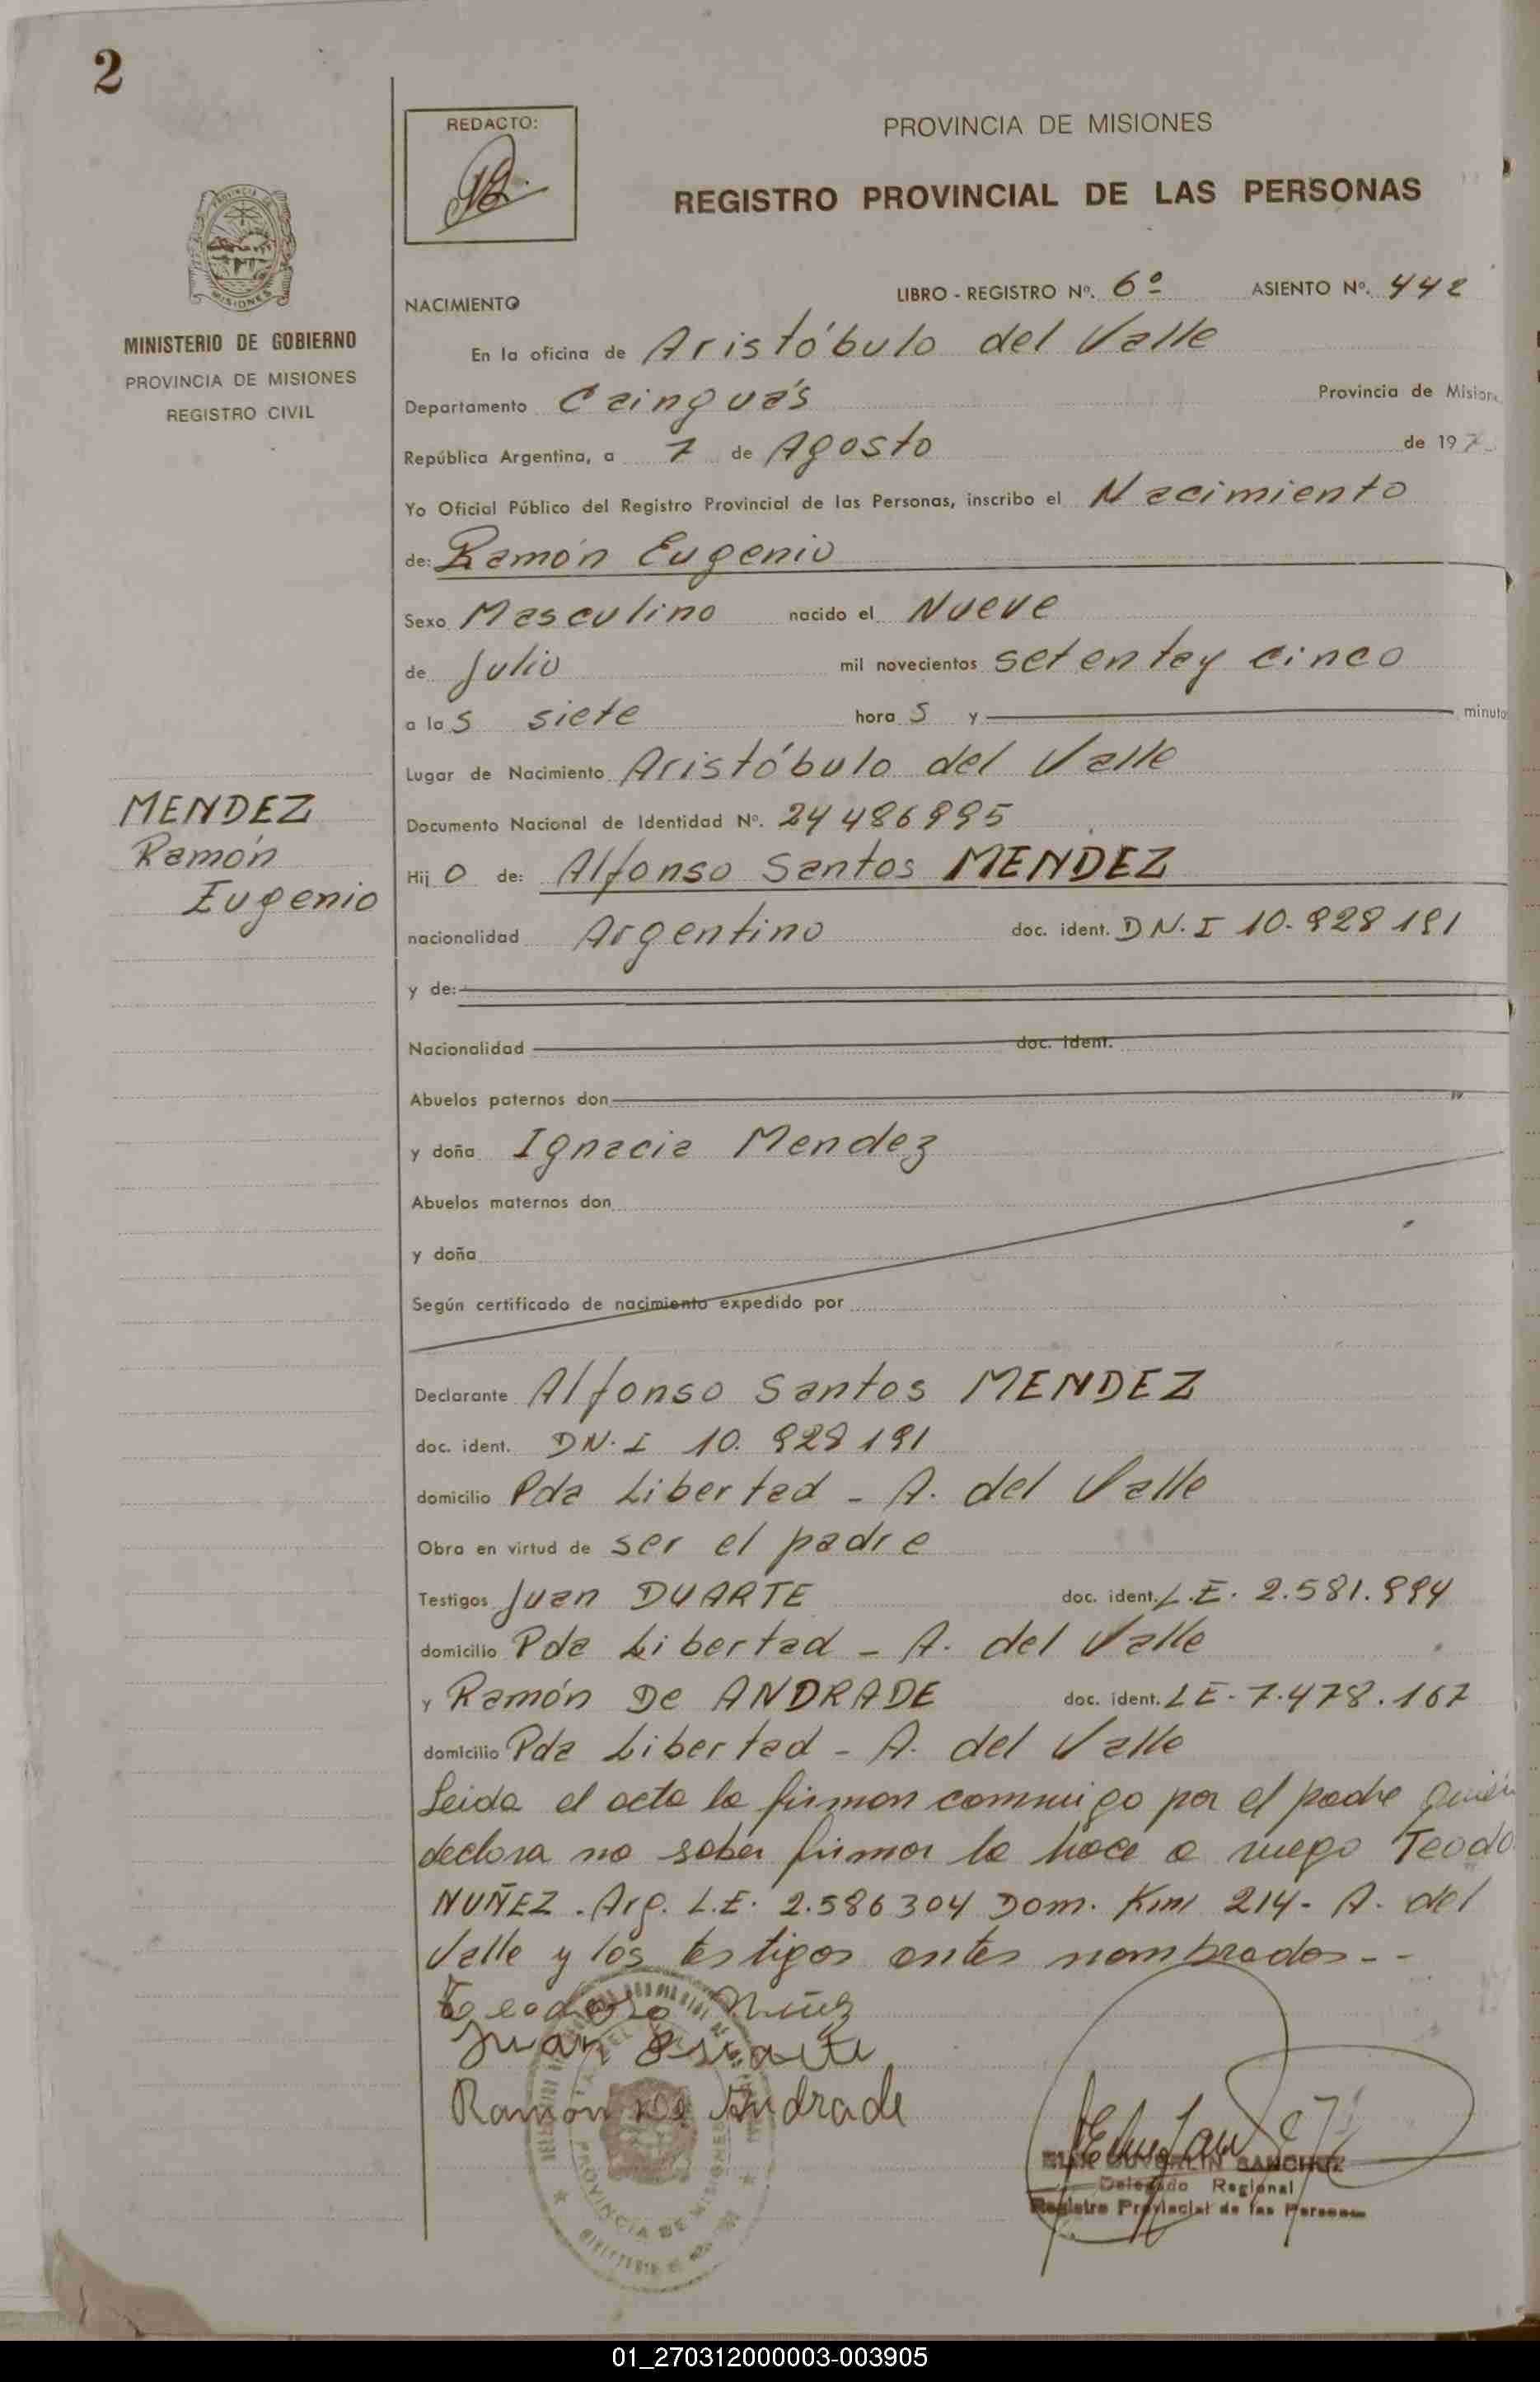 2
REDACTO:
PROVINCIA DE MISIONES
REGISTRO PROVINCIAL DE LAS PERSONAS
PROVINCIA DE
MISIONES
MINISTERIO DE GOBIERNO
PROVINCIA DE MISIONES
REGISTRO CIVIL
LIBRO - REGISTRO Nº. 6º ASIENTO Nº. 442
NACIMIENTO
En la oficina de Aristóbulo del Valle
Departamento Cainguás Provincia de Misione
República Argentina, a 7 de Agosto de 197
Yo Oficial Público del Registro Provincial de las Personas, inscribo el Nacimiento
de: Ramón Eugenio
Sexo Masculino nacido el Nueve
de Julio mil novecientos setentay cinco
a las siete horas y minutos
Lugar de Nacimiento Aristóbulo del Valle
MENDEZ
Ramón
Eugenio
Documento Nacional de Identidad Nº. 24 486 995
Hijo de: Alfonso Santos MENDEZ
nacionalidad Argentino doc. ident. DN.I 10.928 191
y de:
Nacionalidad doc. ident.
Abuelos paternos don
y doña Ignacia Mendez
Abuelos maternos don
y doña
Según certificado de nacimiento expedido por
Declarante Alfonso Santos MENDEZ
doc. ident. DN.I 10.928 191
domicilio Pda Libertad - A. del Valle
Obra en virtud de ser el padre
Testigos Juan DUARTE doc. ident. L.E. 2.581.994
domicilio Pda Libertad - A. del Valle
y Ramón De ANDRADE doc. ident. LE-7.478.167
domicilio Pda Libertad - A. del Valle
Leida el acta la firman conmigo por el padre quién
declara no saber firmar lo hace a ruego Teodo
NUÑEZ. Arg. L.E. 2.586304 Dom. Km 214- A. del
Valle y los testigos antes nombrados--
Teodoro Nuñez
Juan Duarte
Ramon De Andrade
PROVINCIA DE MISIONES
SANCHEZ
Delegado Regional
Registro Provincial de las Personas
01_270312000003-003905